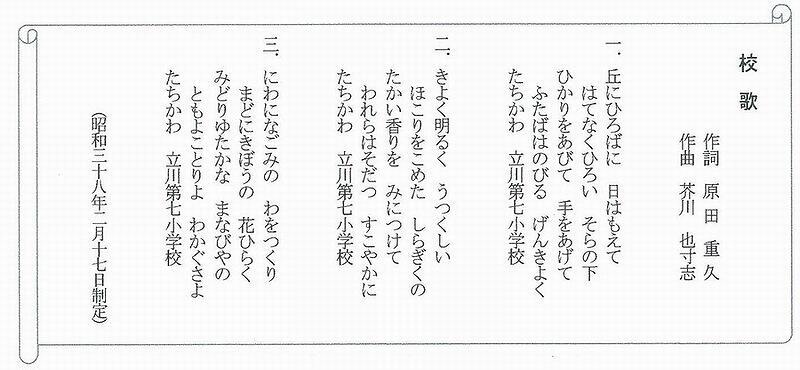 校歌
作詞 原田 重久
作曲 芥川 也寸志
一．丘にひろばに 日はもえて
はてなくひろい そらの下
ひかりをあびて 手をあげて
ふたばはのびる げんきよく
たちかわ 立川第七小学校
二．きよく明るく うつくしい
ほこりをこめた しらぎくの
たかい香りを みにつけて
われらはそだつ すこやかに
たちかわ 立川第七小学校
三．にわになごみの わをつくり
まどにきぼうの 花ひらく
みどりゆたかな まなびやの
ともよことりよ わかぐさよ
たちかわ 立川第七小学校
（昭和三十八年二月十七日制定）